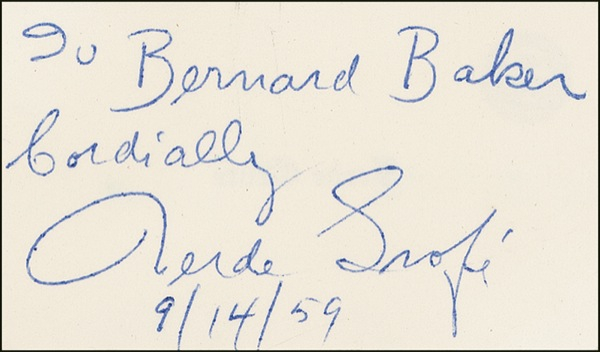 To Bernard Baker
Cordially
Ferde Grofé
9/14/59